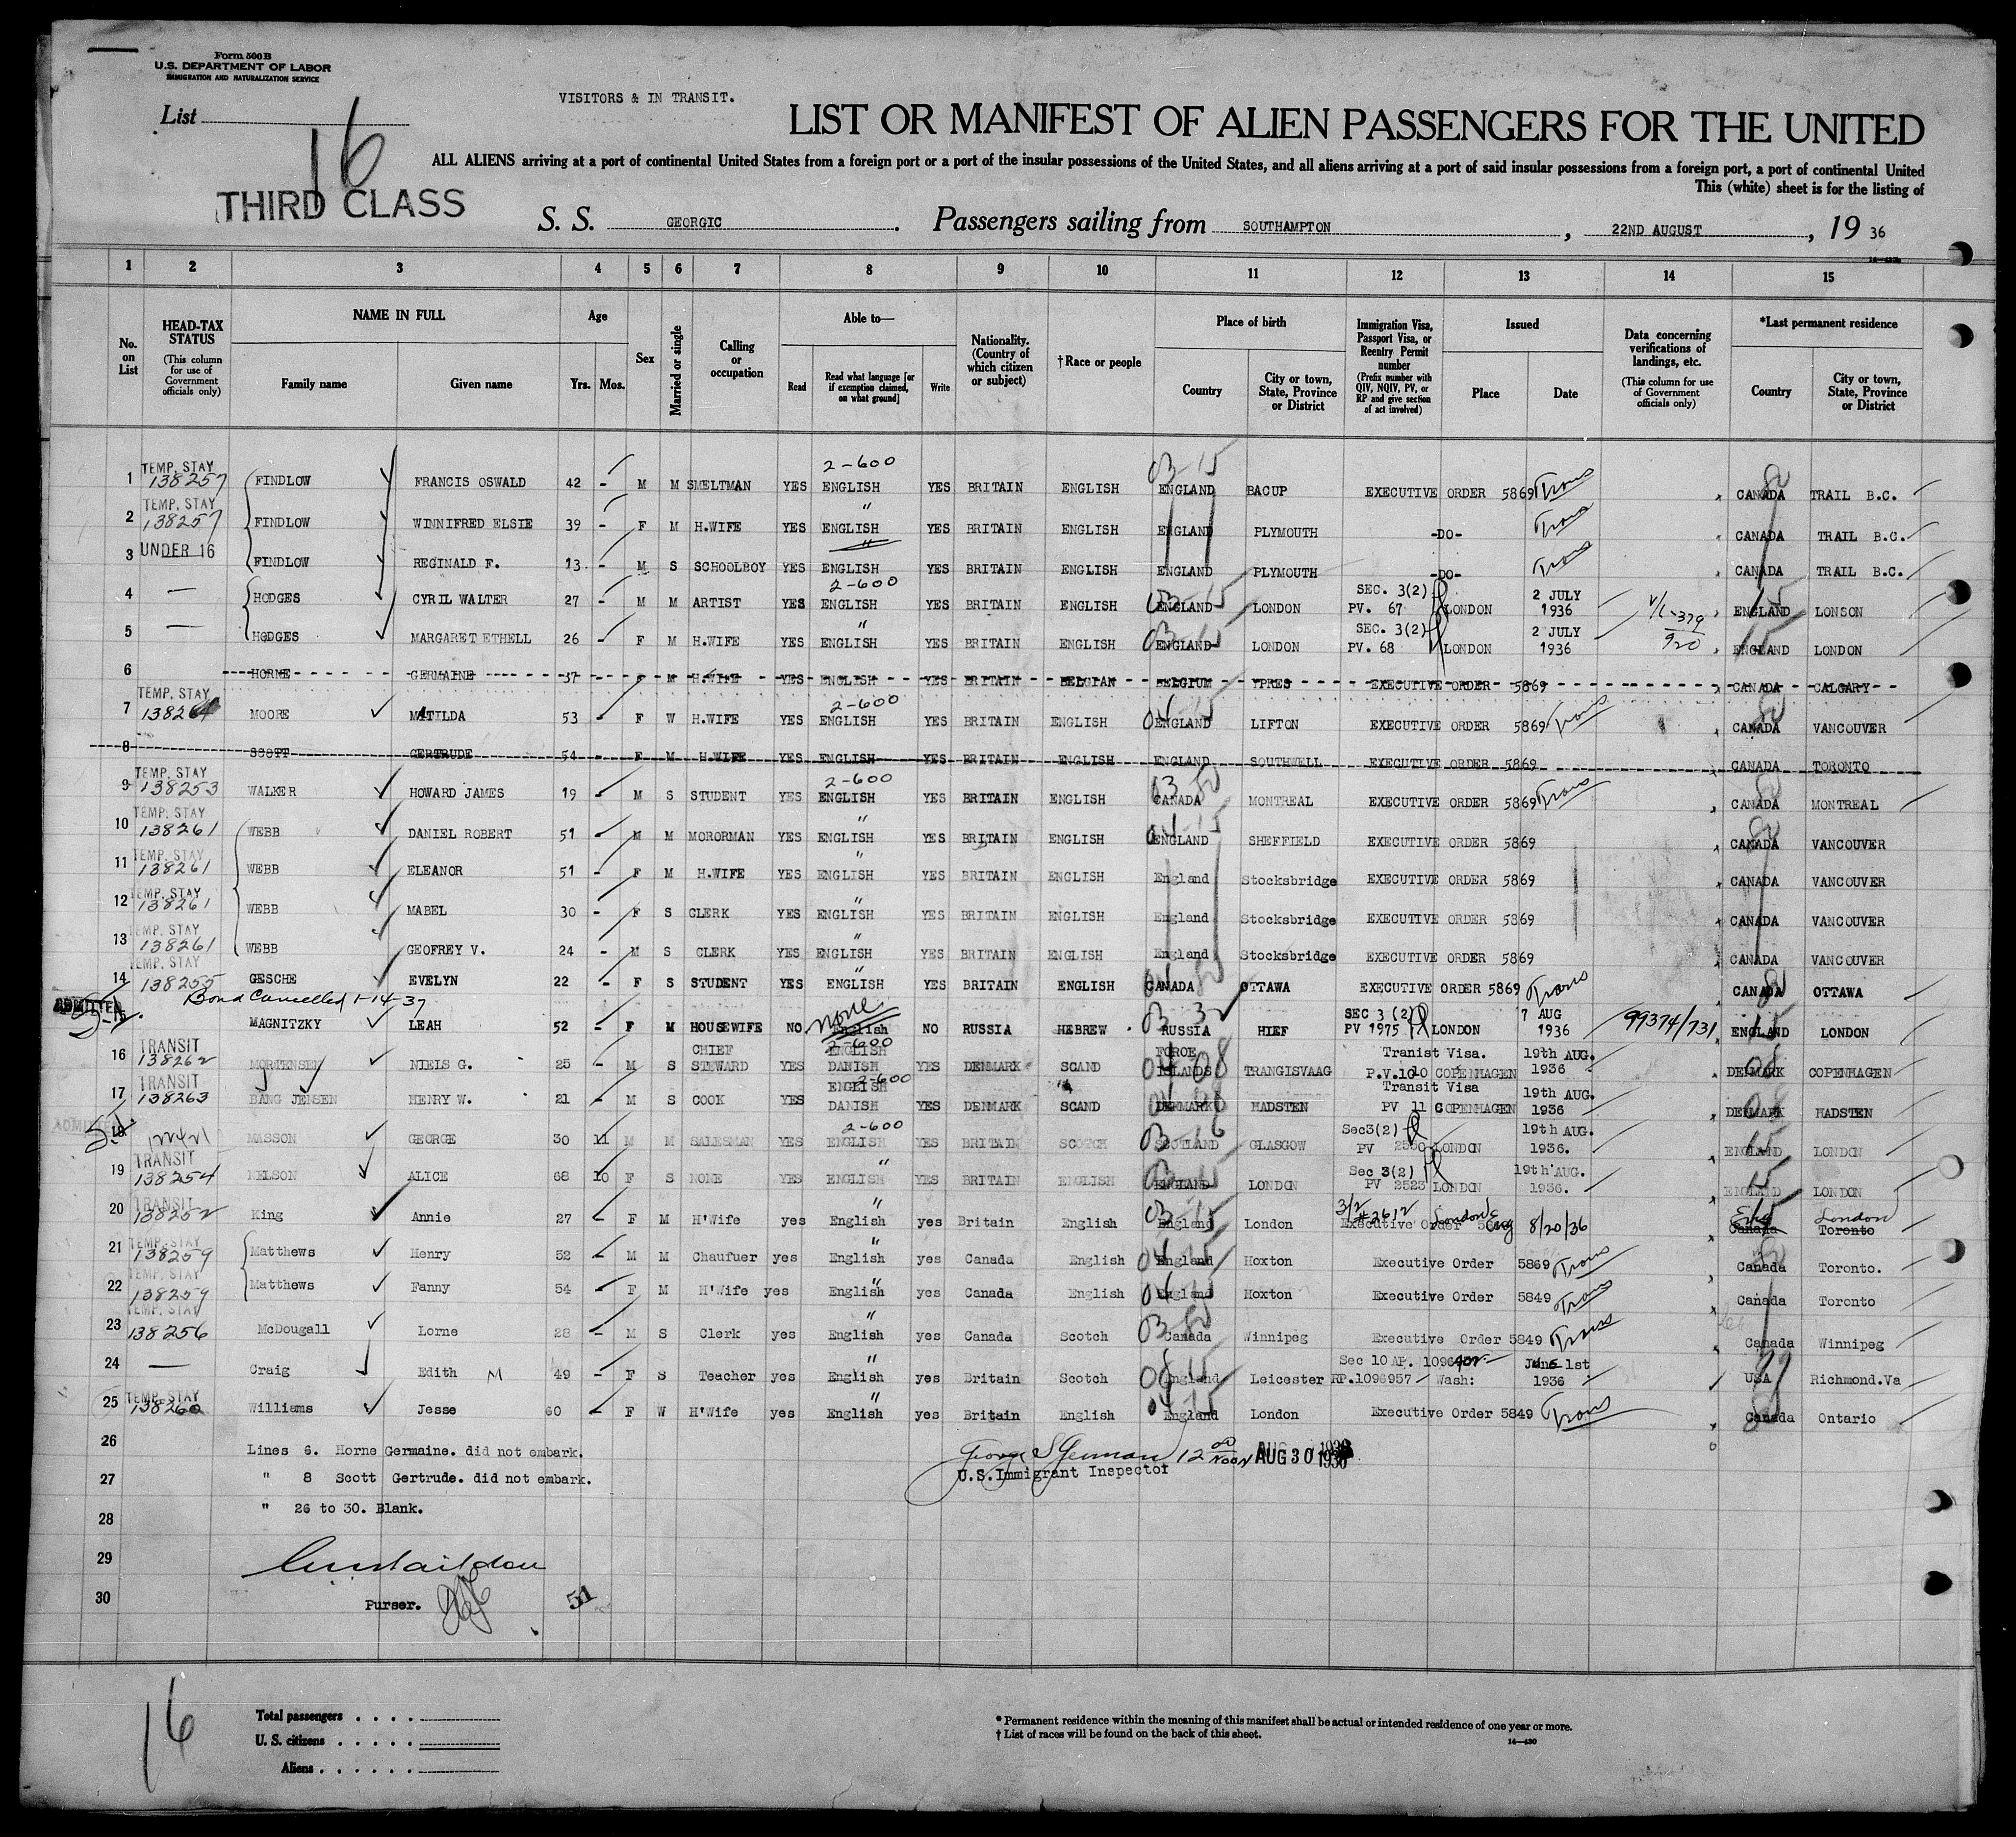 Form 500 B
U.S. DEPARTMENT OF LABOR
IMMIGRATION AND NATURALIZATION SERVICE
VISITORS & IN TRANSIT.
List 16
LIST OR MANIFEST OF ALIEN PASSENGERS FOR THE UNITED
ALL ALIENS arriving at a port of continental United States from a foreign port or a port of the insular possessions of the United States, and all aliens arriving at a port of said insular possessions from a foreign port, a port of continental United
This (white) sheet is for the listing of
THIRD CLASS
S. S. GEORGIC. Passengers sailing from SOUTHAMPTON, 22ND AUGUST, 19 36
1 2 3 4 5 6 7 8 9 10 11 12 13 14 15
No. on List
HEAD-TAX STATUS (This column for use of Government officials only)
NAME IN FULL Family name Given name
Age Yrs. Mos.
Sex
Married or single
Calling or occupation
Able to— Read Read what language [or if exemption claimed, on what ground] Write
Nationality. (Country of which citizen or subject)
† Race or people
Place of birth Country City or town, State, Province or District
Immigration Visa, Passport Visa, or Reentry Permit number (Prefix number with QIV, NQIV, PV, or RP and give section of act involved)
Issued Place Date
Data concerning verifications of landings, etc. (This column for use of Government officials only)
*Last permanent residence Country City or town, State, Province or District
1 TEMP. STAY 138257 FINDLOW FRANCIS OSWALD 42 - M M SMELTMAN YES 2-600 ENGLISH YES BRITAIN ENGLISH 03-15 ENGLAND BACUP EXECUTIVE ORDER 5869 Trans 80 CANADA TRAIL B.C.
2 TEMP. STAY 138257 FINDLOW WINNIFRED ELSIE 39 - F M H.WIFE YES " ENGLISH YES BRITAIN ENGLISH ENGLAND PLYMOUTH -DO- Trans CANADA TRAIL B.C.
3 UNDER 16 FINDLOW REGINALD F. 13 - M S SCHOOLBOY YES " ENGLISH YES BRITAIN ENGLISH ENGLAND PLYMOUTH -DO- Trans CANADA TRAIL B.C.
4 — HODGES CYRIL WALTER 27 - M M ARTIST YES 2-600 ENGLISH YES BRITAIN ENGLISH 03-15 ENGLAND LONDON SEC. 3(2) PV. 67 LONDON 2 JULY 1936 V/L-379 15 ENGLAND LONSON
5 — HODGES MARGARET ETHELL 26 - F M H.WIFE YES " ENGLISH YES BRITAIN ENGLISH 03-15 ENGLAND LONDON SEC. 3(2) PV. 68 LONDON 2 JULY 1936 920 15 ENGLAND LONDON
6 HORNE GERMAINE 37 - F M H.WIFE YES ENGLISH YES BRITAIN BELGIAN BELGIUM YPRES EXECUTIVE ORDER 5869 CANADA CALGARY
7 TEMP. STAY 138264 MOORE MATILDA 53 - F W H.WIFE YES 2-600 ENGLISH YES BRITAIN ENGLISH 04-15 ENGLAND LIFTON EXECUTIVE ORDER 5869 Trans 80 CANADA VANCOUVER
8 SCOTT GERTRUDE 54 - F M H.WIFE YES ENGLISH YES BRITAIN ENGLISH ENGLAND SOUTHWELL EXECUTIVE ORDER 5869 CANADA TORONTO
9 TEMP. STAY 138253 WALKER HOWARD JAMES 19 - M S STUDENT YES 2-600 ENGLISH YES BRITAIN ENGLISH 03 80 CANADA MONTREAL EXECUTIVE ORDER 5869 Trans 80 CANADA MONTREAL
10 TEMP. STAY 138261 WEBB DANIEL ROBERT 51 - M M MORORMAN YES " ENGLISH YES BRITAIN ENGLISH 04-15 ENGLAND SHEFFIELD EXECUTIVE ORDER 5869 80 CANADA VANCOUVER
11 TEMP. STAY 138261 WEBB ELEANOR 51 - F M H.WIFE YES " ENGLISH YES BRITAIN ENGLISH England Stocksbridge EXECUTIVE ORDER 5869 CANADA VANCOUVER
12 TEMP. STAY 138261 WEBB MABEL 30 - F S CLERK YES " ENGLISH YES BRITAIN ENGLISH England Stocksbridge EXECUTIVE ORDER 5869 CANADA VANCOUVER
13 TEMP. STAY 138261 WEBB GEOFREY V. 24 - M S CLERK YES " ENGLISH YES BRITAIN ENGLISH England Stocksbridge EXECUTIVE ORDER 5869 CANADA VANCOUVER
14 TEMP. STAY 138255 GESCHE EVELYN 22 - F S STUDENT YES " ENGLISH YES BRITAIN ENGLISH 04 80 CANADA OTTAWA EXECUTIVE ORDER 5869 Trans 80 CANADA OTTAWA
ADMITTED Bond Cancelled 1-14-37
MAGNITZKY LEAH 52 - F M HOUSEWIFE NO none English NO RUSSIA HEBREW 03 32 RUSSIA HIEF SEC 3 (2) PV 1975 LONDON 7 AUG 1936 99374/731 15 ENGLAND LONDON
16 TRANSIT 138262 MORTENSEN NIELS G. 25 - M S CHIEF STEWARD YES 2-600 ENGLISH DANISH YES DENMARK SCAND 04 08 FOROE ISLANDS TRANGISVAAG Transist Visa. P.V.1010 COPENHAGEN 19th AUG. 1936 08 DENMARK COPENHAGEN
17 TRANSIT 138263 BANG JENSEN HENRY W. 21 - M S COOK YES 2-600 ENGLISH DANISH YES DENMARK SCAND DENMARK HADSTEN Transit Visa PV 11 COPENHAGEN 19th AUG. 1936 08 DENMARK HADSTEN
ADMITTED 18 MASSON GEORGE 30 11 M M SALESMAN YES 2-600 ENGLISH YES BRITAIN SCOTCH 03-16 SCOTLAND GLASGOW Sec3(2) PV 2550 LONDON 19th AUG. 1936. 15 ENGLAND LONDON
19 TRANSIT 138254 NELSON ALICE 68 10 F S NONE YES " ENGLISH YES BRITAIN ENGLISH 03-15 ENGLAND LONDON Sec 3(2) PV 2523 LONDON 19th AUG. 1936. 15 ENGLAND LONDON
20 TRANSIT 138252 King Annie 27 - F M H'Wife yes " English yes Britain English 03-15 England London 3/2 #2612 Executive Order London Eng 8/20/36 Eng London Canada Toronto
21 TEMP. STAY 138259 Matthews Henry 52 - M M Chaufuer yes " English yes Canada English 04-15 England Hoxton Executive Order 5869 Trans 80 Canada Toronto.
22 TEMP. STAY 138259 Matthews Fanny 54 - F M H'Wife yes " English yes Canada English 04-15 England Hoxton Executive Order 5849 Trans Canada Toronto
23 TEMP. STAY 138256 McDougall Lorne 28 - M S Clerk yes " English yes Canada Scotch 03-80 Canada Winnipeg Executive Order 5849 Trans Canada Winnipeg
24 — Craig Edith M 49 - F S Teacher yes " English yes Britain Scotch 04-15 England Leicester Sec 10 AP. RP.1096957 Wash: June 1st 1936 99 USA Richmond.Va
25 TEMP. STAY 138260 Williams Jesse 60 - F W H'Wife yes " English yes Britain English 04-15 England London Executive Order 5849 Trans 80 Canada Ontario
26 Lines 6. Horne Germaine. did not embark.
George S German 12 00 NOON AUG 30 1936
U.S.Immigrant Inspector
27 " 8 Scott Gertrude. did not embark.
" 26 to 30. Blank.
28
29
30 Purser. 51
16
Total passengers . . . .
U. S. citizens . . . . .
Aliens . . . . . .
* Permanent residence within the meaning of this manifest shall be actual or intended residence of one year or more.
† List of races will be found on the back of this sheet.
14—430